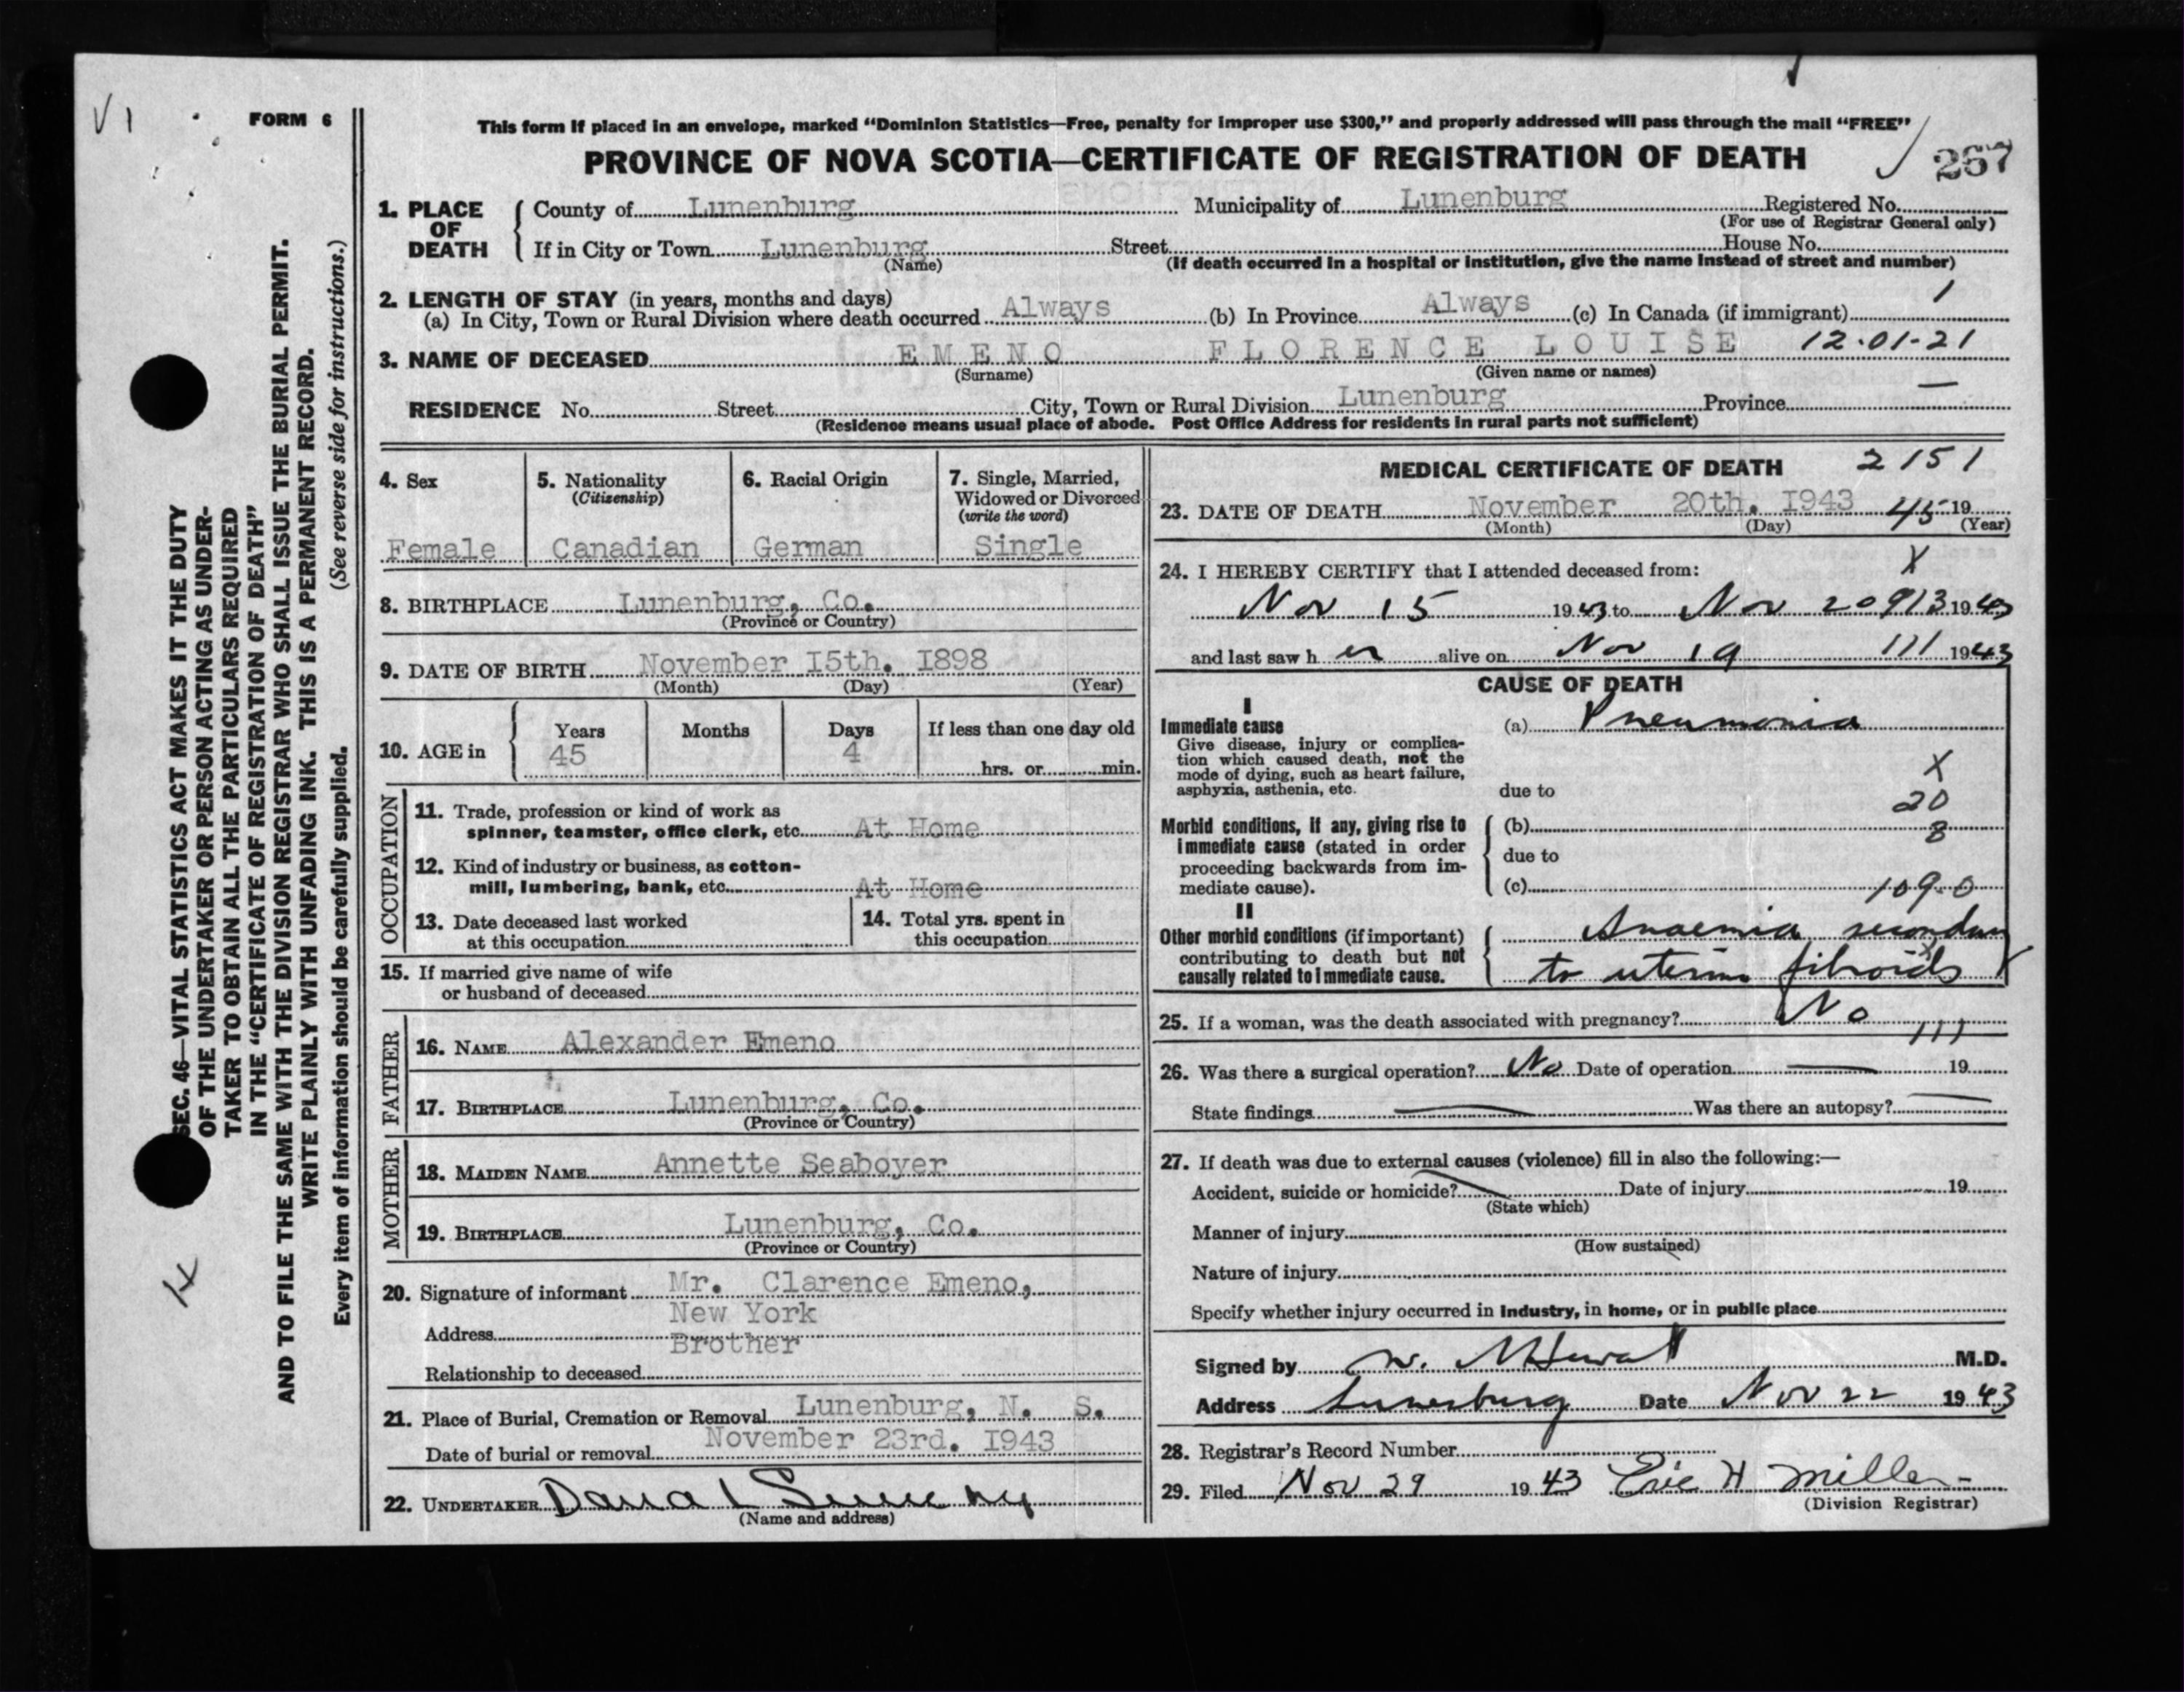 V 1
FORM 6
This form if placed in an envelope, marked "Dominion Statistics—Free, penalty for improper use $300," and properly addressed will pass through the mail "FREE"
PROVINCE OF NOVA SCOTIA—CERTIFICATE OF REGISTRATION OF DEATH
267
1. PLACE OF DEATH
County of Lunenburg Municipality of Lunenburg Registered No.
(For use of Registrar General only)
If in City or Town Lunenburg Street House No.
(Name) (If death occurred in a hospital or institution, give the name instead of street and number)
2. LENGTH OF STAY (in years, months and days)
(a) In City, Town or Rural Division where death occurred Always (b) In Province Always (c) In Canada (if immigrant) 1
3. NAME OF DECEASED EMENO FLORENCE LOUISE 12.01-21
(Surname) (Given name or names)
RESIDENCE No. Street City, Town or Rural Division Lunenburg Province —
(Residence means usual place of abode. Post Office Address for residents in rural parts not sufficient)
SEC. 46—VITAL STATISTICS ACT MAKES IT THE DUTY
OF THE UNDERTAKER OR PERSON ACTING AS UNDER-
TAKER TO OBTAIN ALL THE PARTICULARS REQUIRED
IN THE "CERTIFICATE OF REGISTRATION OF DEATH"
AND TO FILE THE SAME WITH THE DIVISION REGISTRAR WHO SHALL ISSUE THE BURIAL PERMIT.
WRITE PLAINLY WITH UNFADING INK. THIS IS A PERMANENT RECORD.
Every item of information should be carefully supplied. (See reverse side for instructions.)
4. Sex
Female
5. Nationality
(Citizenship)
Canadian
6. Racial Origin
German
7. Single, Married,
Widowed or Divorced
(write the word)
Single
8. BIRTHPLACE Lunenburg, Co.
(Province or Country)
9. DATE OF BIRTH November I5th. I898
(Month) (Day) (Year)
10. AGE in
Years Months Days If less than one day old
45 4 hrs. or min.
OCCUPATION
11. Trade, profession or kind of work as
spinner, teamster, office clerk, etc. At Home
12. Kind of industry or business, as cotton-
mill, lumbering, bank, etc. At Home
13. Date deceased last worked
at this occupation
14. Total yrs. spent in
this occupation
15. If married give name of wife
or husband of deceased
FATHER
16. NAME Alexander Emeno
17. BIRTHPLACE Lunenburg, Co.
(Province or Country)
MOTHER
18. MAIDEN NAME Annette Seaboyer
19. BIRTHPLACE Lunenburg, Co.
(Province or Country)
20. Signature of informant Mr. Clarence Emeno,
New York
Address
Brother
Relationship to deceased
21. Place of Burial, Cremation or Removal Lunenburg, N. S.
Date of burial or removal November 23rd. I943
22. UNDERTAKER
(Name and address)
MEDICAL CERTIFICATE OF DEATH 2151
23. DATE OF DEATH November 20th. I943 45 19
(Month) (Day) (Year)
24. I HEREBY CERTIFY that I attended deceased from: X
Nov 15 1943 to Nov 20 913 1943
and last saw h er alive on Nov 19 111 1943
CAUSE OF DEATH
I
Immediate cause
Give disease, injury or complica-
tion which caused death, not the
mode of dying, such as heart failure,
asphyxia, asthenia, etc.
(a) Pneumonia
X
due to
20
Morbid conditions, if any, giving rise to
immediate cause (stated in order
proceeding backwards from im-
mediate cause).
(b) 8
due to
(c) 109-0
II
Other morbid conditions (if important)
contributing to death but not
causally related to immediate cause.
Anaemia secondary
to uterine fibroids
25. If a woman, was the death associated with pregnancy? No
111
26. Was there a surgical operation? No Date of operation — 19
State findings — Was there an autopsy? —
27. If death was due to external causes (violence) fill in also the following:—
Accident, suicide or homicide? Date of injury 19
(State which)
Manner of injury
(How sustained)
Nature of injury
Specify whether injury occurred in industry, in home, or in public place
Signed by W. M.D.
Address Lunenburg Date Nov 22 1943
28. Registrar's Record Number
29. Filed Nov 29 1943 Eric H Miller
(Division Registrar)